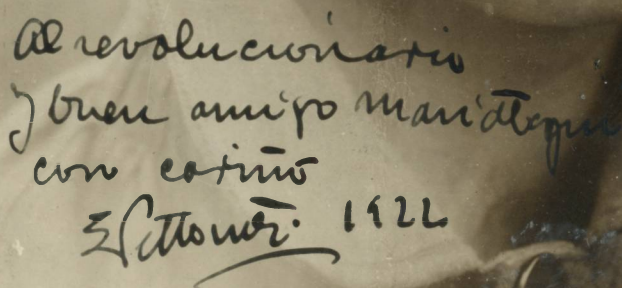 Al revolucionario
y buen amigo Mariategui
con cariño
E Pettoruti. 1922